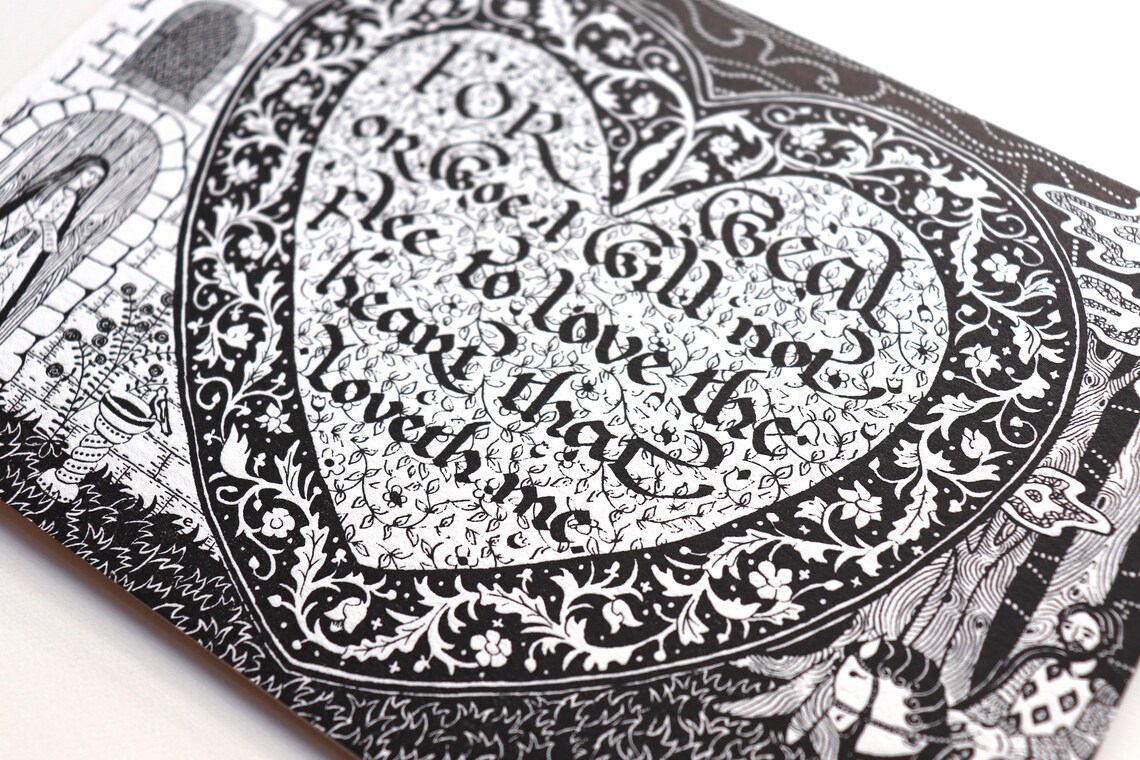 FOR Weal
or Woe I Will not
flee to love the
heart that
loveth me